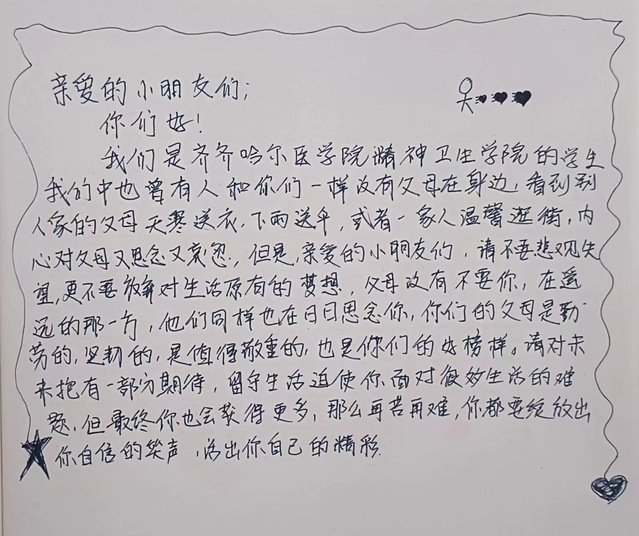 亲爱的小朋友们；
你们好！
我们是齐齐哈尔医学院精神卫生学院的学生
我们中也曾有人和你们一样没有父母在身边，看到别
人家的父母天寒送衣，下雨送伞，或者一家人温馨逛街，内
心对父母又思念又哀怨，但是，亲爱的小朋友们，请不要悲观失
望，更不要放弃对生活原有的梦想，父母没有不要你，在遥
远的那一方，他们同样也在日日思念你，你们的父母是勤
劳的，坚韧的，是值得敬重的，也是你们的好榜样。请对未
来抱有一部分期待，留守生活迫使你面对很多生活的难
题，但最终你也会获得更多，那么再苦再难，你都要绽放出
你自信的笑声，活出你自己的精彩.